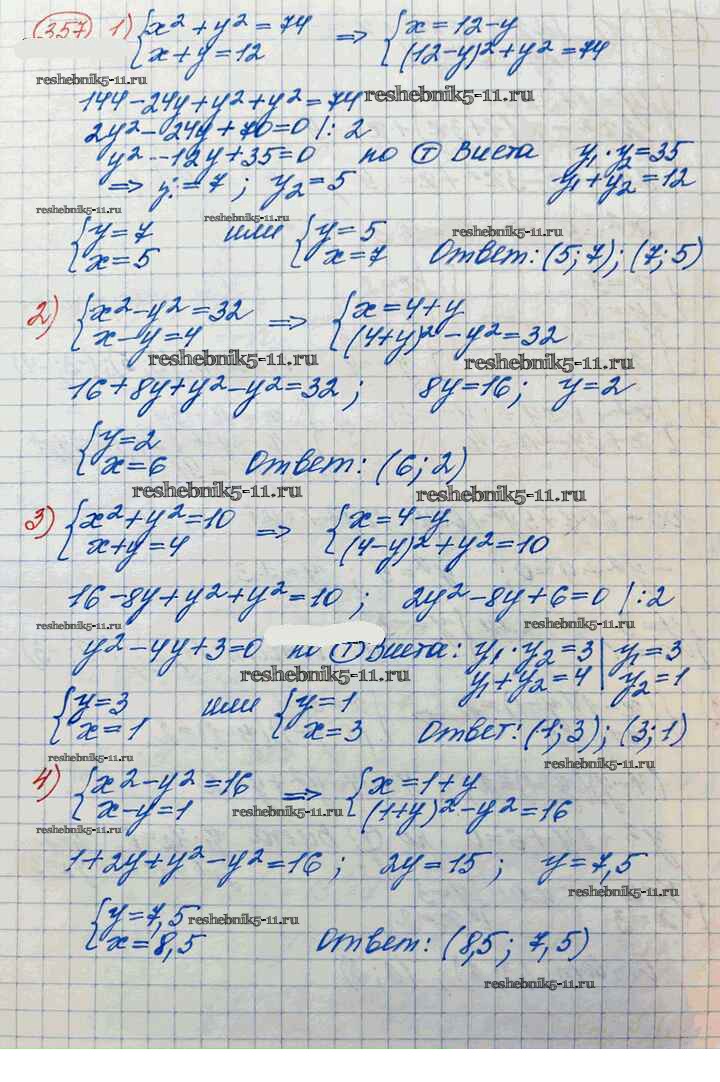 357) 1) { x² + y² = 74 => { x = 12 - y
x + y = 12 (12-y)² + y² = 74
reshebnik5-11.ru
144 - 24y + y² + y² = 74 reshebnik5-11.ru
2y² - 24y + 70 = 0 |: 2
y² - 12y + 35 = 0 по Т Виета y₁ · y₂ = 35
=> y₁ = 7 ; y₂ = 5 y₁ + y₂ = 12
reshebnik5-11.ru reshebnik5-11.ru
{ y = 7 или { y = 5 reshebnik5-11.ru
x = 5 x = 7 Ответ: (5; 7); (7; 5)
2) { x² - y² = 32 => { x = 4 + y
x - y = 4 (4+y)² - y² = 32
reshebnik5-11.ru reshebnik5-11.ru
16 + 8y + y² - y² = 32 ; 8y = 16 ; y = 2
{ y = 2
x = 6 Ответ: (6; 2)
reshebnik5-11.ru reshebnik5-11.ru
3) { x² + y² = 10 => { x = 4 - y
x + y = 4 (4-y)² + y² = 10
16 - 8y + y² + y² = 10 ; 2y² - 8y + 6 = 0 |: 2
reshebnik5-11.ru reshebnik5-11.ru
y² - 4y + 3 = 0 по Т Виета: y₁ · y₂ = 3 | y₁ = 3
reshebnik5-11.ru y₁ + y₂ = 4 | y₂ = 1
{ y = 3 или { y = 1
x = 1 x = 3 Ответ: (1; 3); (3; 1)
reshebnik5-11.ru reshebnik5-11.ru
4) { x² - y² = 16 => { x = 1 + y
x - y = 1 reshebnik5-11.ru (1+y)² - y² = 16
reshebnik5-11.ru reshebnik5-11.ru
1 + 2y + y² - y² = 16 ; 2y = 15 ; y = 7,5
reshebnik5-11.ru
{ y = 7,5 reshebnik5-11.ru
x = 8,5 Ответ: (8,5 ; 7,5)
reshebnik5-11.ru